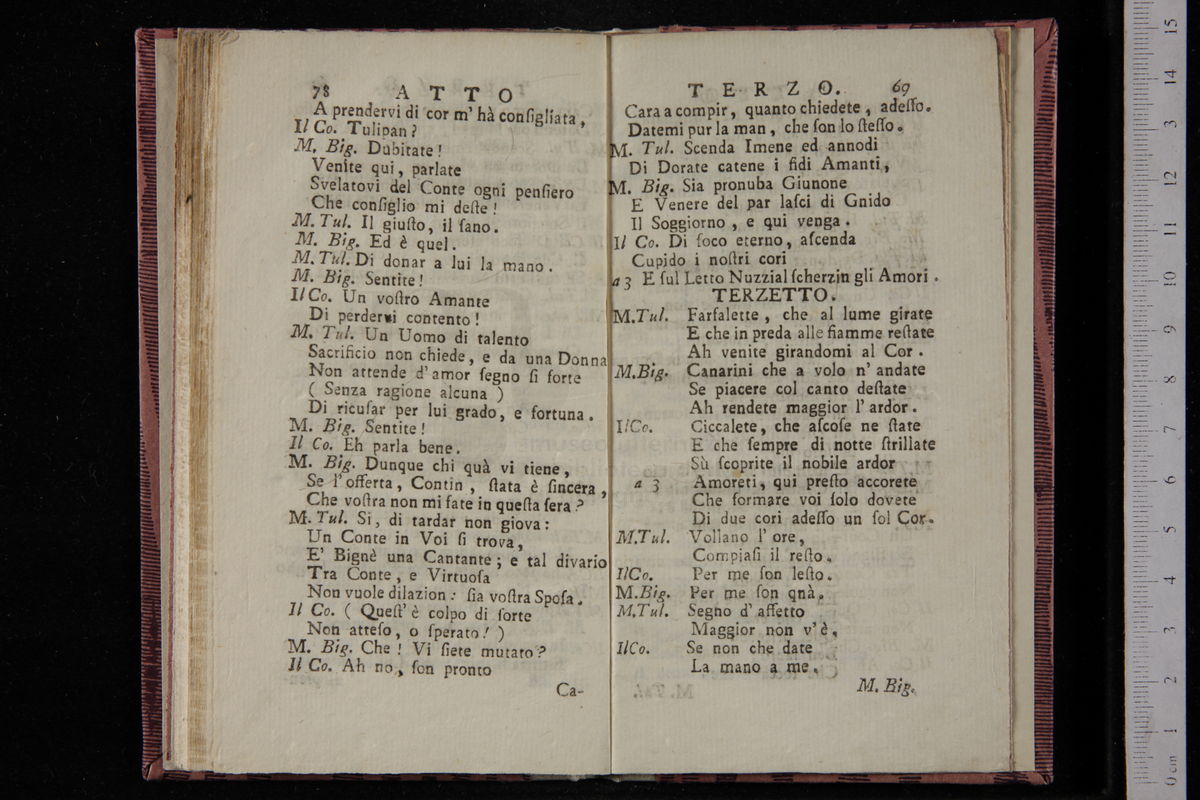 78 ATTO
A prendervi di cor m' hà conſigliata,
Il Co. Tulipan?
M. Big. Dubitate!
Venite qui, parlate
Svelatovi del Conte ogni penſiero
Che conſiglio mi deſte!
M. Tul. Il giuſto, il ſano.
M. Big. Ed è quel.
M. Tul. Di donar a lui la mano.
M. Big. Sentite!
Il Co. Un voſtro Amante
Di perdervi contento!
M. Tul. Un Uomo di talento
Sacrificio non chiede, e da una Donna
Non attende d'amor ſegno ſi forte
( Senza ragione alcuna )
Di ricuſar per lui grado, e fortuna.
M. Big. Sentite!
Il Co. Eh parla bene.
M. Big. Dunque chi quà vi tiene,
Se l'offerta, Contin, ſtata è ſincera,
Che voſtra non mi fate in queſta ſera?
M. Tul. Si, di tardar non giova:
Un Conte in Voi ſi trova,
E' Bignè una Cantante; e tal divario
Tra Conte, e Virtuoſa
Non vuole dilazion: ſia voſtra Spoſa.
Il Co. ( Queſt' è colpo di ſorte
Non atteſo, o ſperato! )
M. Big. Che! Vi ſiete mutato?
Il Co. Ah no, ſon pronto
Ca-
TERZO. 69
Cara a compir, quanto chiedete, adeſſo.
Datemi pur la man, che ſon lo ſteſſo.
M. Tul. Scenda Imene ed annodi
Di Dorate catene i fidi Amanti,
M. Big. Sia pronuba Giunone
E Venere del par laſci di Gnido
Il Soggiorno, e qui venga.
Il Co. Di foco eterno, aſcenda
Cupido i noſtri cori
a 3 E ſul Letto Nuzzial ſcherzin gli Amori.
TERZETTO.
M. Tul. Farfalette, che al lume girate
E che in preda alle fiamme reſtate
Ah venite girandomi al Cor.
M. Big. Canarini che a volo n' andate
Se piacere col canto deſtate
Ah rendete maggior l' ardor.
Il Co. Ciccalete, che aſcoſe ne ſtate
E che ſempre di notte ſtrillate
Sù ſcoprite il nobile ardor
a 3 Amoreti, qui preſto accorete
Che formare voi ſolo dovete
Di due cori adeſſo un ſol Cor.
M. Tul. Vollano l' ore,
Compiaſi il reſto.
Il Co. Per me ſon leſto.
M. Big. Per me ſon qnà.
M. Tul. Segno d' affetto
Maggior non v' è,
Il Co. Se non che date
La mano a me.
M. Big.